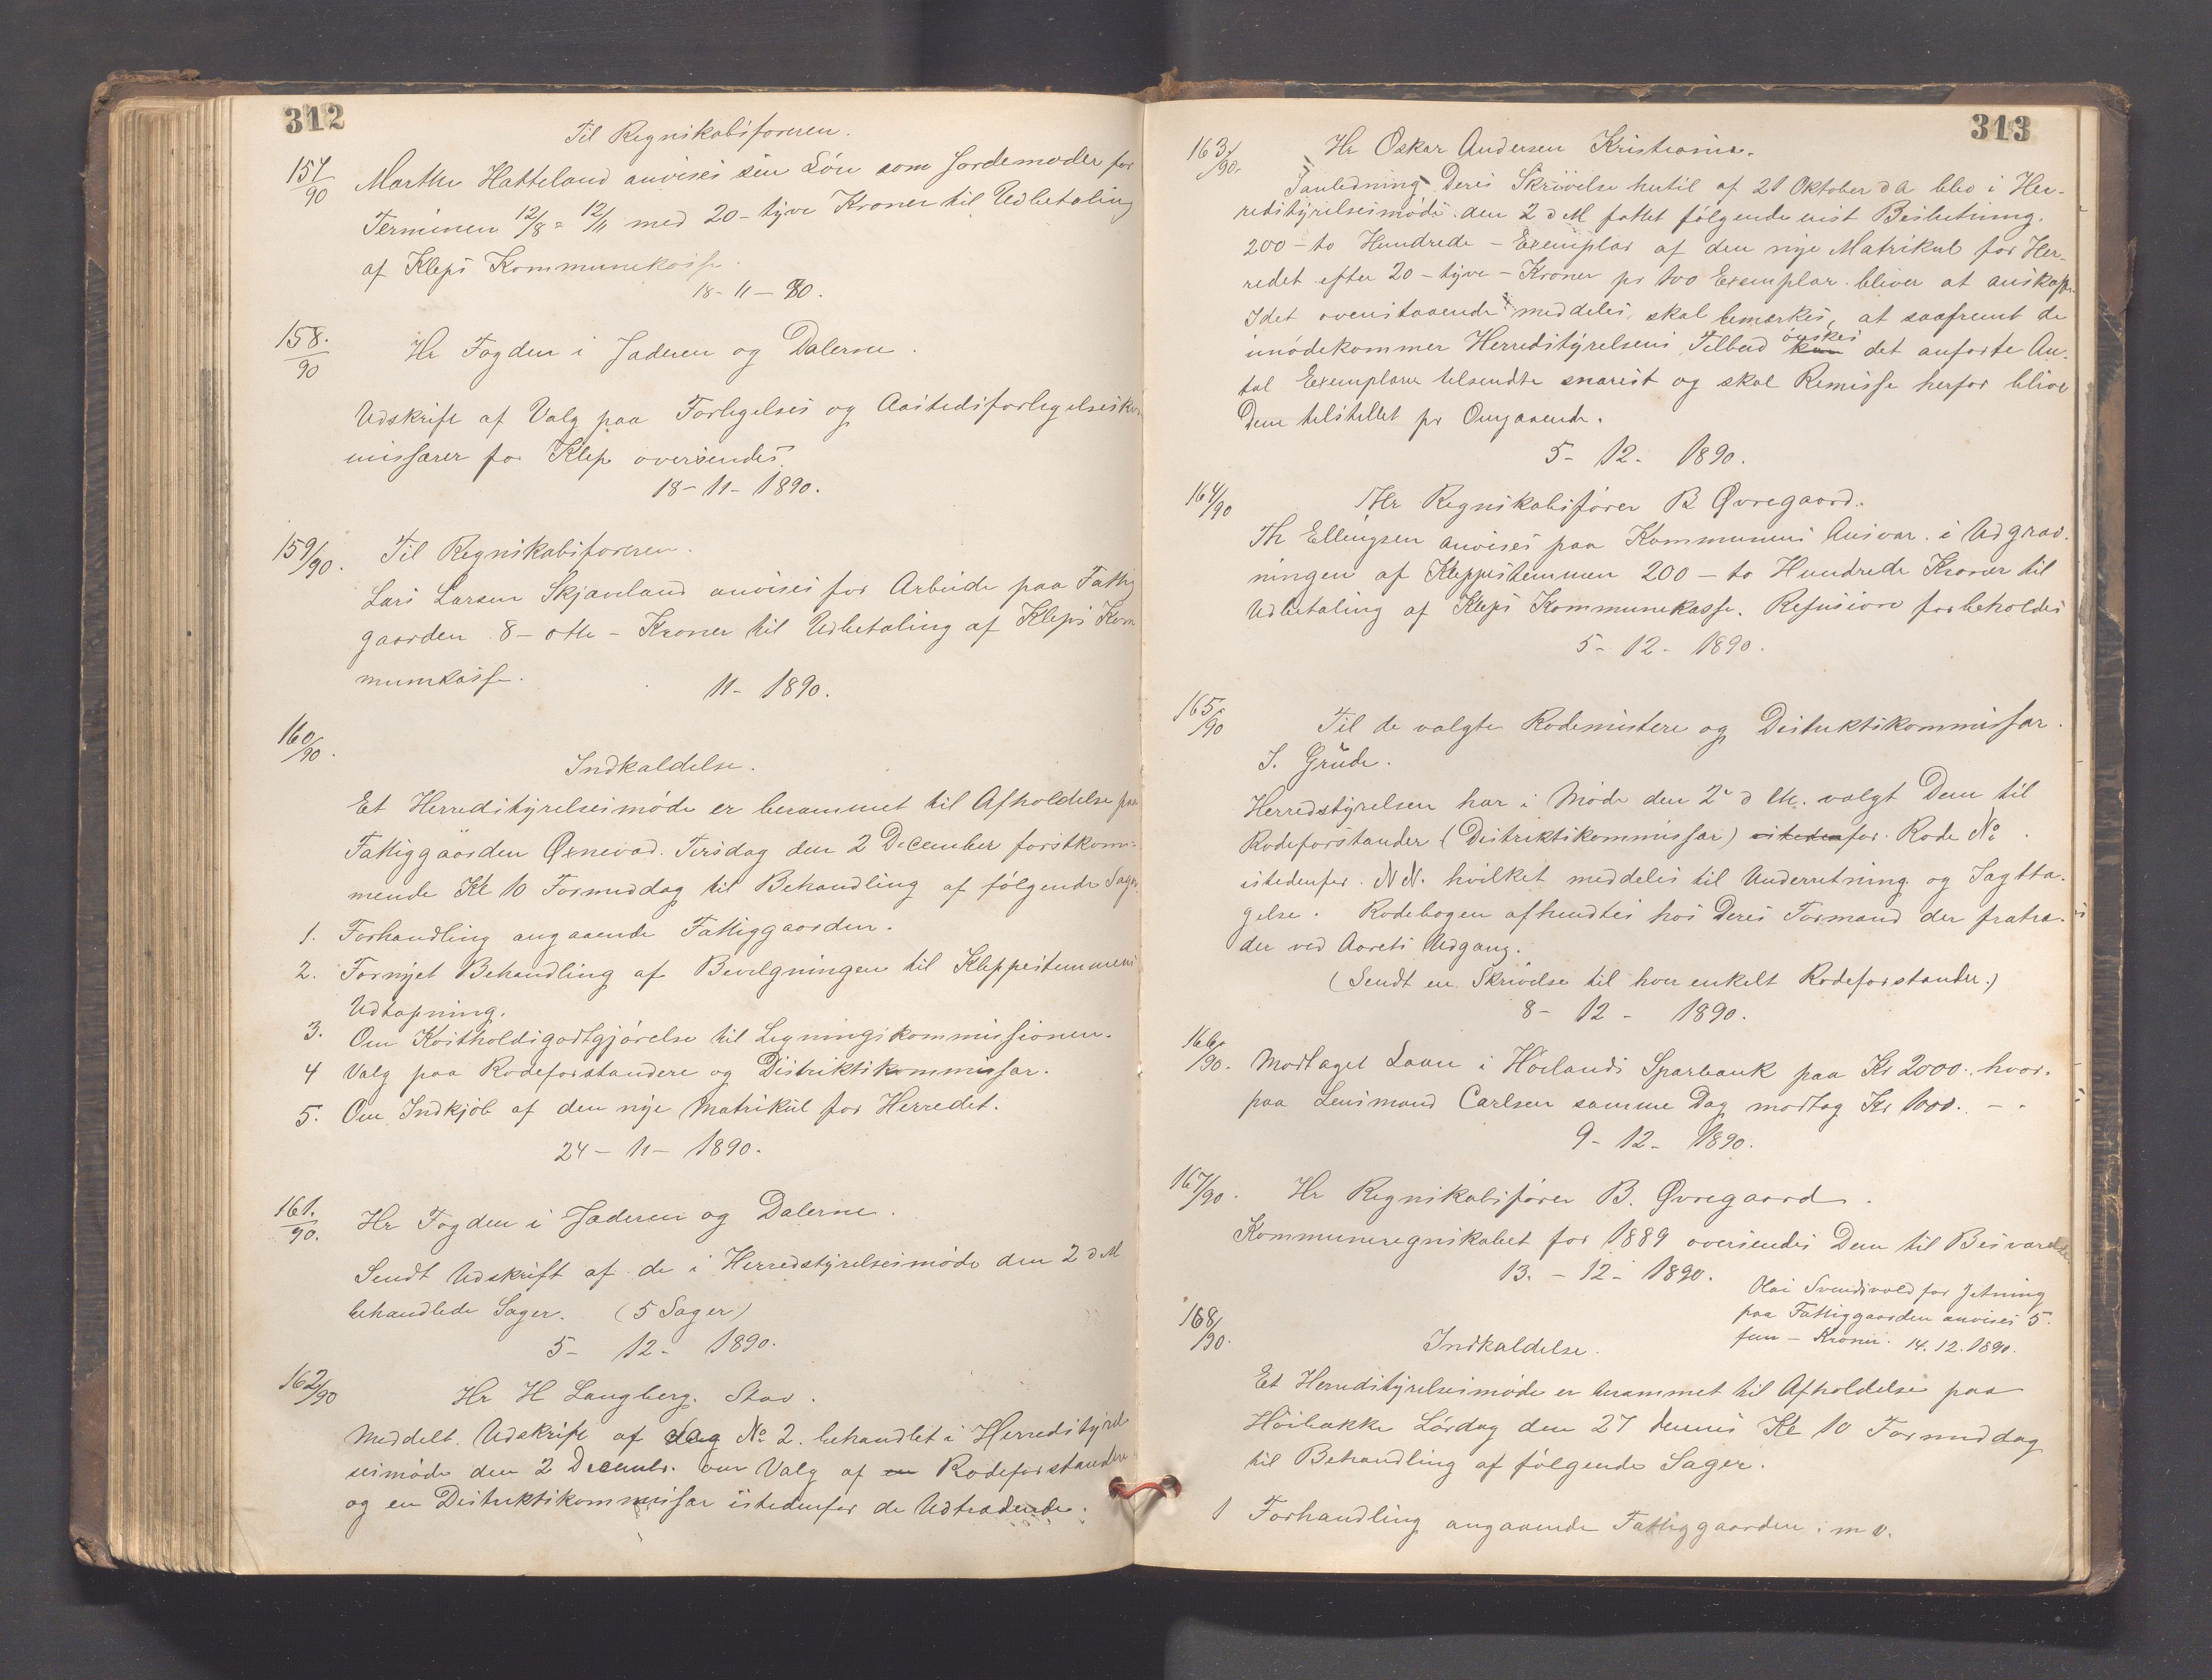 312
Til Regnskabsføreren.
157/90 Marthe Hatteland anvises sin Løn som Jordemoder for
Terminen 12/8 = 12/11 med 20 - tyve Kroner til Udbetaling
af Kleps Kommunekasse.
18 - 11 - 90.
158./90 Hr Fogden i Jæderen og Dalerne.
Udskrift af Valg paa Forligelses og Aastedsforligelsesko
missærer for Klep oversendes.
18 - 11 - 1890.
159/90. Til Regnskabsføreren.
Lars Larsen Skjæveland anvises for Arbeide paa Fattig
gaarden 8 - otte - Kroner til Udbetaling af Kleps Kom
munekasse.
11 - 1890.
160/90.
Indkaldelse.
Et Herredstyrelsesmøde er berammet til Afholdelse paa
Fattiggaarden Øxnevad. Tirsdag den 2 December førstkom-
mende Kl 10 Formiddag til Behandling af følgende Sager.
1. Forhandling angaaende Fattiggaarden.
2. Fornyet Behandling af Bevilgningen til Kleppestemmens
Udtapning.
3. Om Kostholdsgodtgjørelse til Ligningskommissionen.
4 Valg paa Rodeforstandere og Distriktskommissær.
5. Om Indkjøb af den nye Matrikül for Herredet.
24 - 11 - 1890.
161./90. Hr Fogden i Jæderen og Dalerne.
Sendt Udskrift af de i Herredstyrelsesmøde den 2 d M
behandlede Sager. (5 Sager)
5 - 12 - 1890.
162/90 Hr H Langberg. Stav.
Meddelt. Udskrift af Sag No 2. behandlet i Herredstyrel
sesmøde den 2 Decembr. om Valg af en Rodeforstandere
og en Distriktskommissær istedenfor de Udtrædende.
313
163./90. Hr Oskar Andersen Kristiania.
I anledning Deres Skrivelse hertil af 21 Oktober d A blev i Her-
redstyrelsesmøde den 2 d M fattet følgende enst Beslutning.
200 - to Hundrede - Exemplar af den nye Matrikul for Her-
redet efter 20 - tyve - Kroner pr 100 Exemplar bliver at anskaffe.
Idet ovenstaaende meddeles, skal bemærkes, at saafremt de
imødekommer Herredstyrelsens Tilbud kan ønskes det anførte An-
tal Exemplarer tilsendte snarest og skal Remisse herfor blive
Dem tilstillet pr Omgaaende.
5 - 12 - 1890.
164/90 Hr Regnskabsfører B Øvregaard.
Th Ellingsen anvises paa Kommunens Ansvar. i Udgrav-
ningen af Kleppestemmen 200 - to Hundrede Kroner til
Udbetaling af Kleps Kommunekasse. Refusion forbeholdes
5 - 12 - 1890.
165./90 Til de valgte Rodemestere og Distriktskommissær.
S. Grüde.
Herredstyrelsen har i Møde den 2 d M. valgt Dem til
Rodeforstander (Distriktskommissær) istedenfor. Rode No .
istedenfor. N N. hvilket meddeles til Underretning og Iagtta-
gelse. Rodebogen afhentes hos Deres Formand der fratræ-
der ved Aarets Udgang.
(Sendt en Skrivelse til hver enkelt Rodeforstander.)
8 - 12 - 1890.
166./90. Modtaget Laan i Høilands Sparbank paa Kr 2000., hvor-
paa Lensmand Carlsen samme Dag modtog Kr 1000. -
9 - 12 - 1890.
167/90. Hr Regnskabsfører B. Øvregaard.
Kommuneregnskabet for 1889 oversendes Dem til Besvarelse
13. - 12 - 1890.
Svendsvold for Jetning
paa Fattiggaarden anvises 5.
fem - Kroner. 14. 12. 1890.
168/90.
Indkaldelse.
Et Herredstyrelsesmøde er berammet til Afholdelse paa
Høibakke Lørdag den 27 dennes Kl 10 Formiddag
til Behandling af følgende Sager.
1 Forhandling angaaende Fattiggaarden. m v.